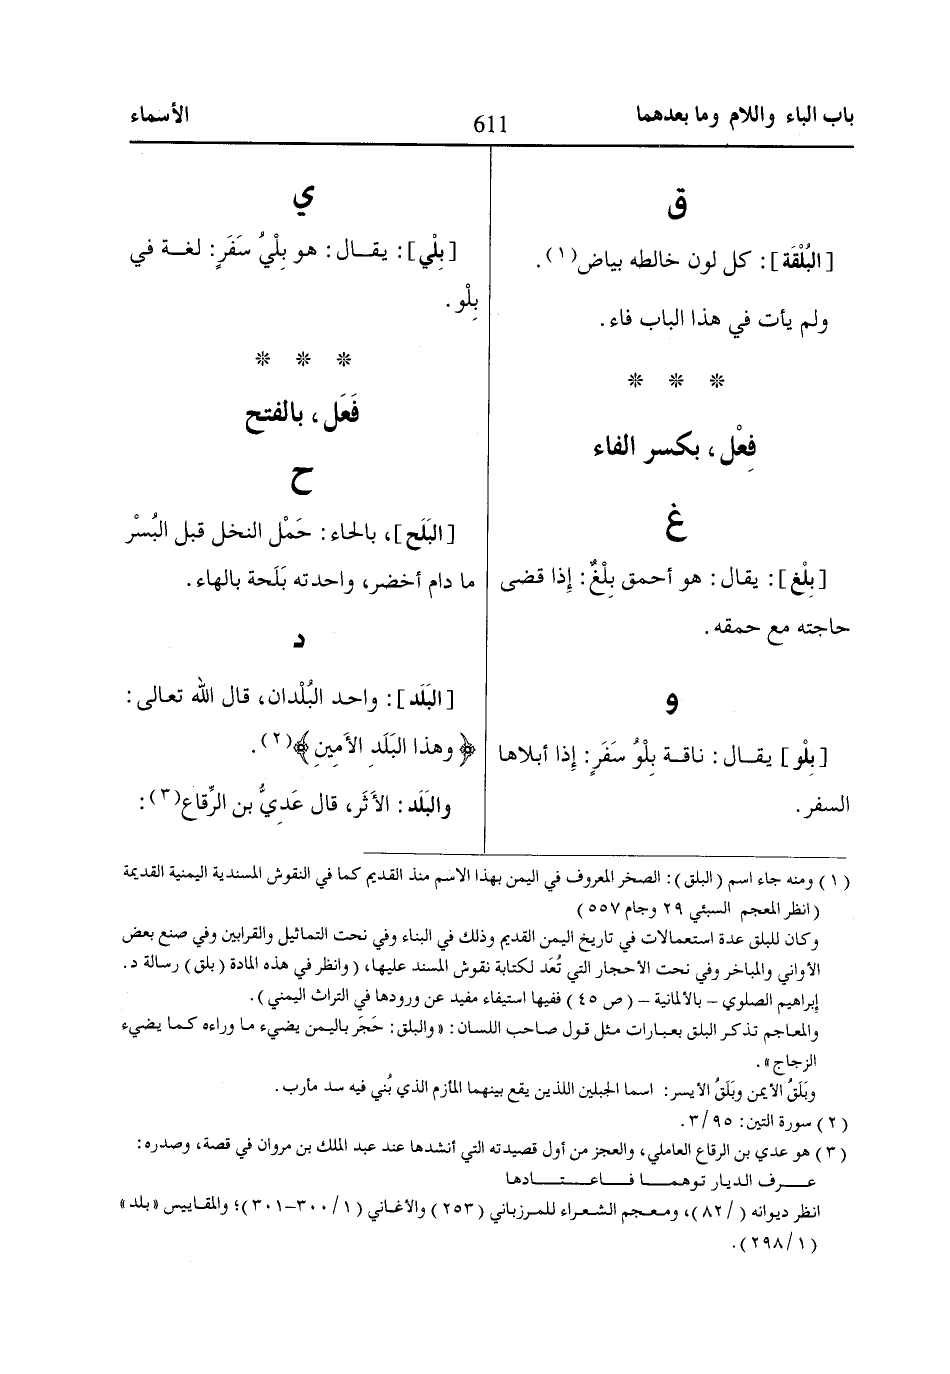 باب الباء واللام وما بعدهما
611
الأسماء
ق
[البُلْقَة]: كل لون خالطه بياض(١).
ولم يأت في هذا الباب فاء.
* * *
فِعْل، بكسر الفاء
غ
[بِلْغ]: يقال: هو أحمق بِلْغٌ: إِذا قضى
حاجته مع حمقه.
و
[بِلْو] يقال: ناقة بِلْوُ سَفَرٍ: إِذا أبلاها
السفر.
ي
[بِلْي]: يقال: هو بِلْيُ سَفَرٍ: لغة في
بِلْو.
* * *
فَعَل، بالفتح
ح
[البَلَح]، بالحاء: حَمْل النخل قبل البُسْر
ما دام أخضر، واحدته بَلَحة بالهاء.
د
[البَلَد]: واحد البُلْدان، قال الله تعالى:
﴿وهذا البَلَدِ الأَمينِ﴾(٢).
والبَلَد: الأَثَر، قال عَدِيُّ بن الرِّقاع(٣):
(١) ومنه جاء اسم (البلق): الصخر المعروف في اليمن بهذا الاسم منذ القديم كما في النقوش المسندية اليمنية القديمة
(انظر المعجم السبئي ٢٩ وجام ٥٥٧)
وكان للبلق عدة استعمالات في تاريخ اليمن القديم وذلك في البناء وفي نحت التماثيل والقرابين وفي صنع بعض
الأواني والمباخر وفي نحت الأحجار التي تُعَد لكتابة نقوش المسند عليها، (وانظر في هذه المادة (بلق) رسالة د.
إبراهيم الصلوي - بالألمانية - (ص ٤٥) ففيها استيفاء مفيد عن ورودها في التراث اليمني).
والمعاجم تذكر البلق بعبارات مثل قول صاحب اللسان: «والبلق: حَجَر باليمن يضيء ما وراءه كما يضيء
الزجاج».
وبَلَقُ الأيمن وبَلَقُ الأيسر: اسما الجبلين اللذين يقع بينهما المأزم الذي بُني فيه سد مأرب.
(٢) سورة التين: ٩٥/ ٣.
(٣) هو عدي بن الرقاع العاملي، والعجز من أول قصيدته التي أنشدها عند عبد الملك بن مروان في قصة، وصدره:
عـــرف الديار توهمـــا فـاعـــتـــادها
انظر ديوانه ( /٨٢)، ومعجم الشعراء للمرزباني (٢٥٣) والأغاني (١/ ٣٠٠-٣٠١)؛ والمقاييس «بلد»
(١/ ٢٩٨).